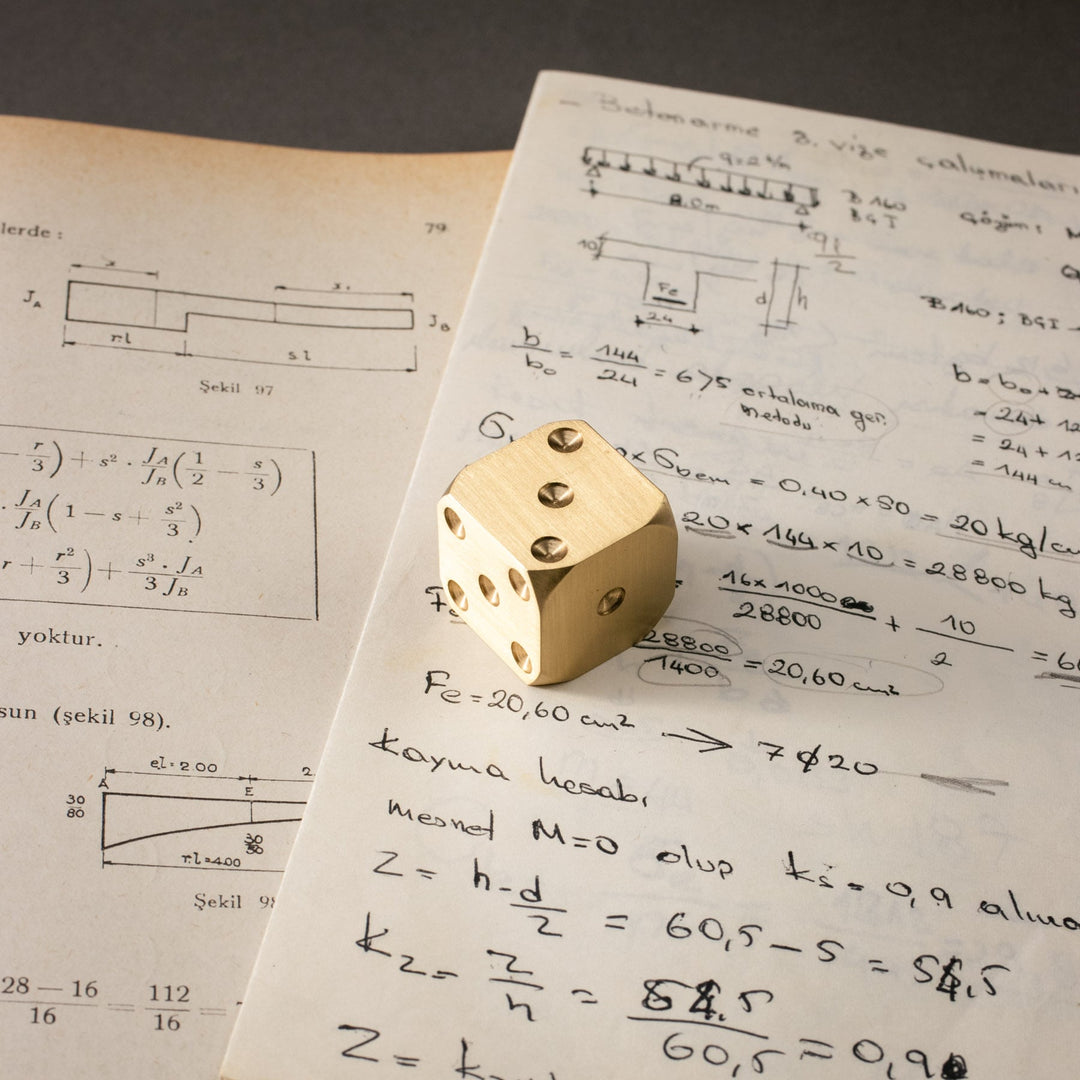 lerde :
79
x
x.
J_A
J_B
r.l
s l
Şekil 97
r/3) + s² · J_A/J_B (1/2 − s/3)
· J_A/J_B (1 − s + s²/3)
r + r²/3) + s³ · J_A / 3 J_B
yoktur.
sun (şekil 98).
el=2.00
2
A
E
30/80
r.l=4.00
Şekil 98
28 − 16 / 16 = 112 / 16 =
- Betonarme 3. vize çalışmaları
q=2 t/m
8.0m
B 160
BG I
Çözüm: M
ql/2
10
Fe
24
d
h
B160; BGI
b/b₀ = 144/24 = 6>5 ortalama ger. metodu
b = b₀ +
= 24 + 12
= 24 + 12
= 144 cm
x σbem = 0,40 x 80 = 20 kg/cm
20 x 144 x 10 = 28800 kg
= 16x1000 / 28800 + 10 / 2 = 60
28800 / 1400 = 20,60 cm²
Fe = 20,60 cm² → 7 ϕ 20
Kayma hesabı
mesnet M=0 olup ks = 0,9 alına
Z = h - d/2 = 60,5 - 5 = 55,5
kz = z/h = / 60,5 = 0,9
Z = k